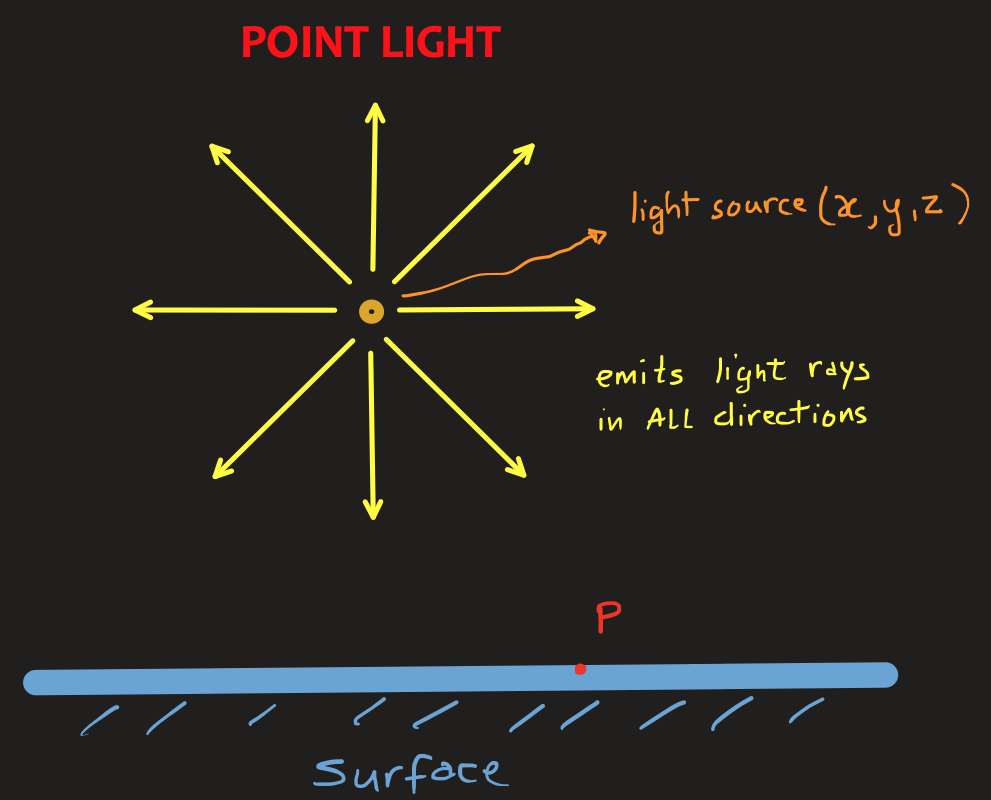 POINT LIGHT
light source (x,y,z)
emits light rays
in ALL directions
P
Surface